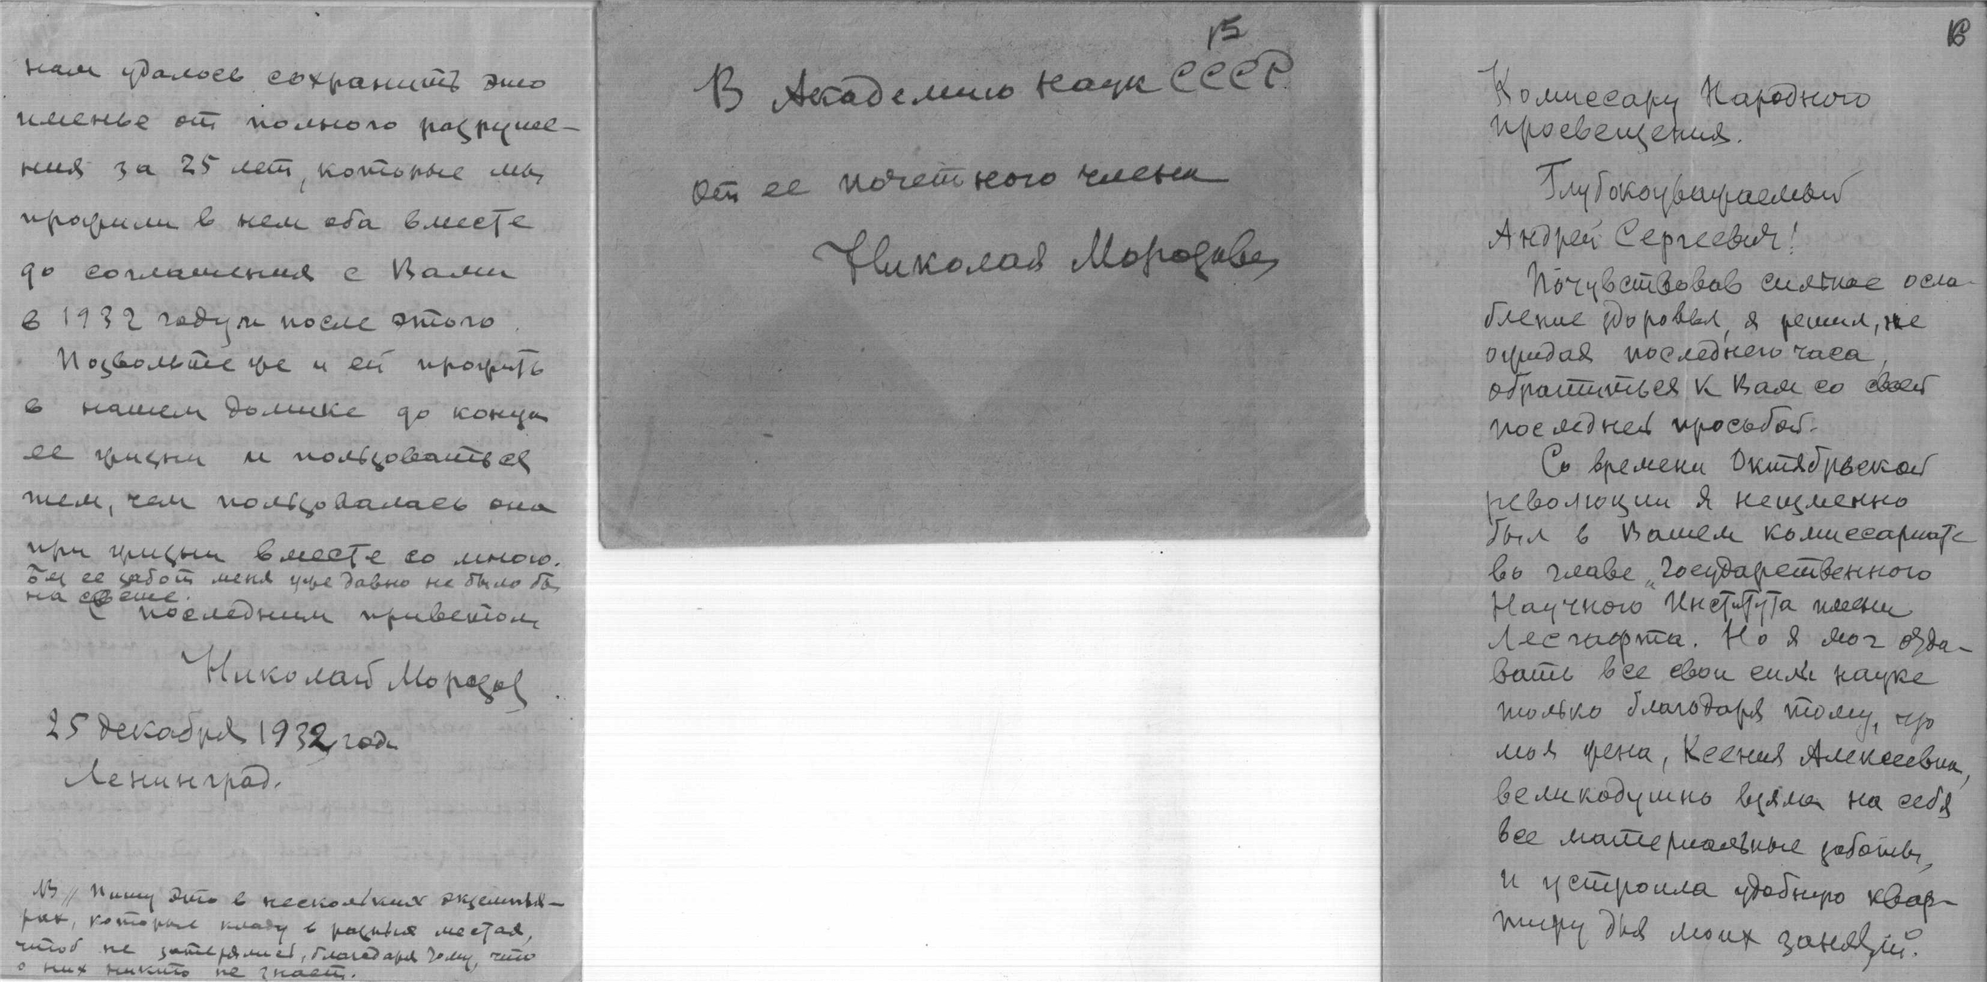 нам удалось сохранить это
именье от полного разруше-
ния за 25 лет, которые мы
прожили в нем оба вместе
до соглашения с Вами
в 1932 году и после этого.
Позвольте же и ей прожить
в нашем домике до конца
ее жизни и пользоваться
тем, чем пользовалась она
при жизни вместе со мною.
Без ее забот меня уже давно не было бы
на свете.
С последним приветом
Николай Морозов
25 декабря 1932 года
Ленинград.
NB // Пишу это в нескольких экземпля-
рах, которые кладу в разных местах,
чтоб не затерялись, благодаря тому, что
о них никто не знает.
15
В Академию Наук СССР
от ее почетного члена
Николая Морозова
16
Комиссару Народного
просвещения.
Глубокоуважаемый
Андрей Сергеевич!
Почувствовав сильное осла-
бление здоровья, я решил, не
ожидая последнего часа,
обратиться к Вам со своей
последней просьбой.
Со времени Октябрьской
революции я неизменно
был в Вашем комиссариате
во главе „Государственного
Научного Института имени
Лесгафта. Но я мог отда-
вать все свои силы науке
только благодаря тому, что
моя жена, Ксения Алексеевна,
великодушно взяла на себя
все материальные заботы,
и устроила удобную квар-
тиру для моих занятий.